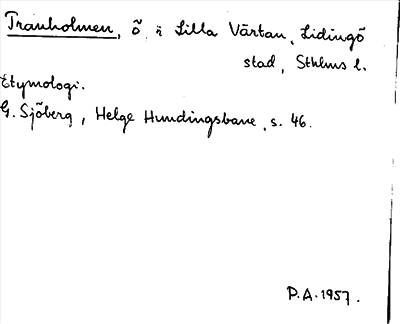 Tranholmen, ö i Lilla Värtan, Lidingö
stad, Sthlms l.
Etymologi.
G. Sjöberg, Helge Hundingsbane, s. 46.
P.A. 1957.